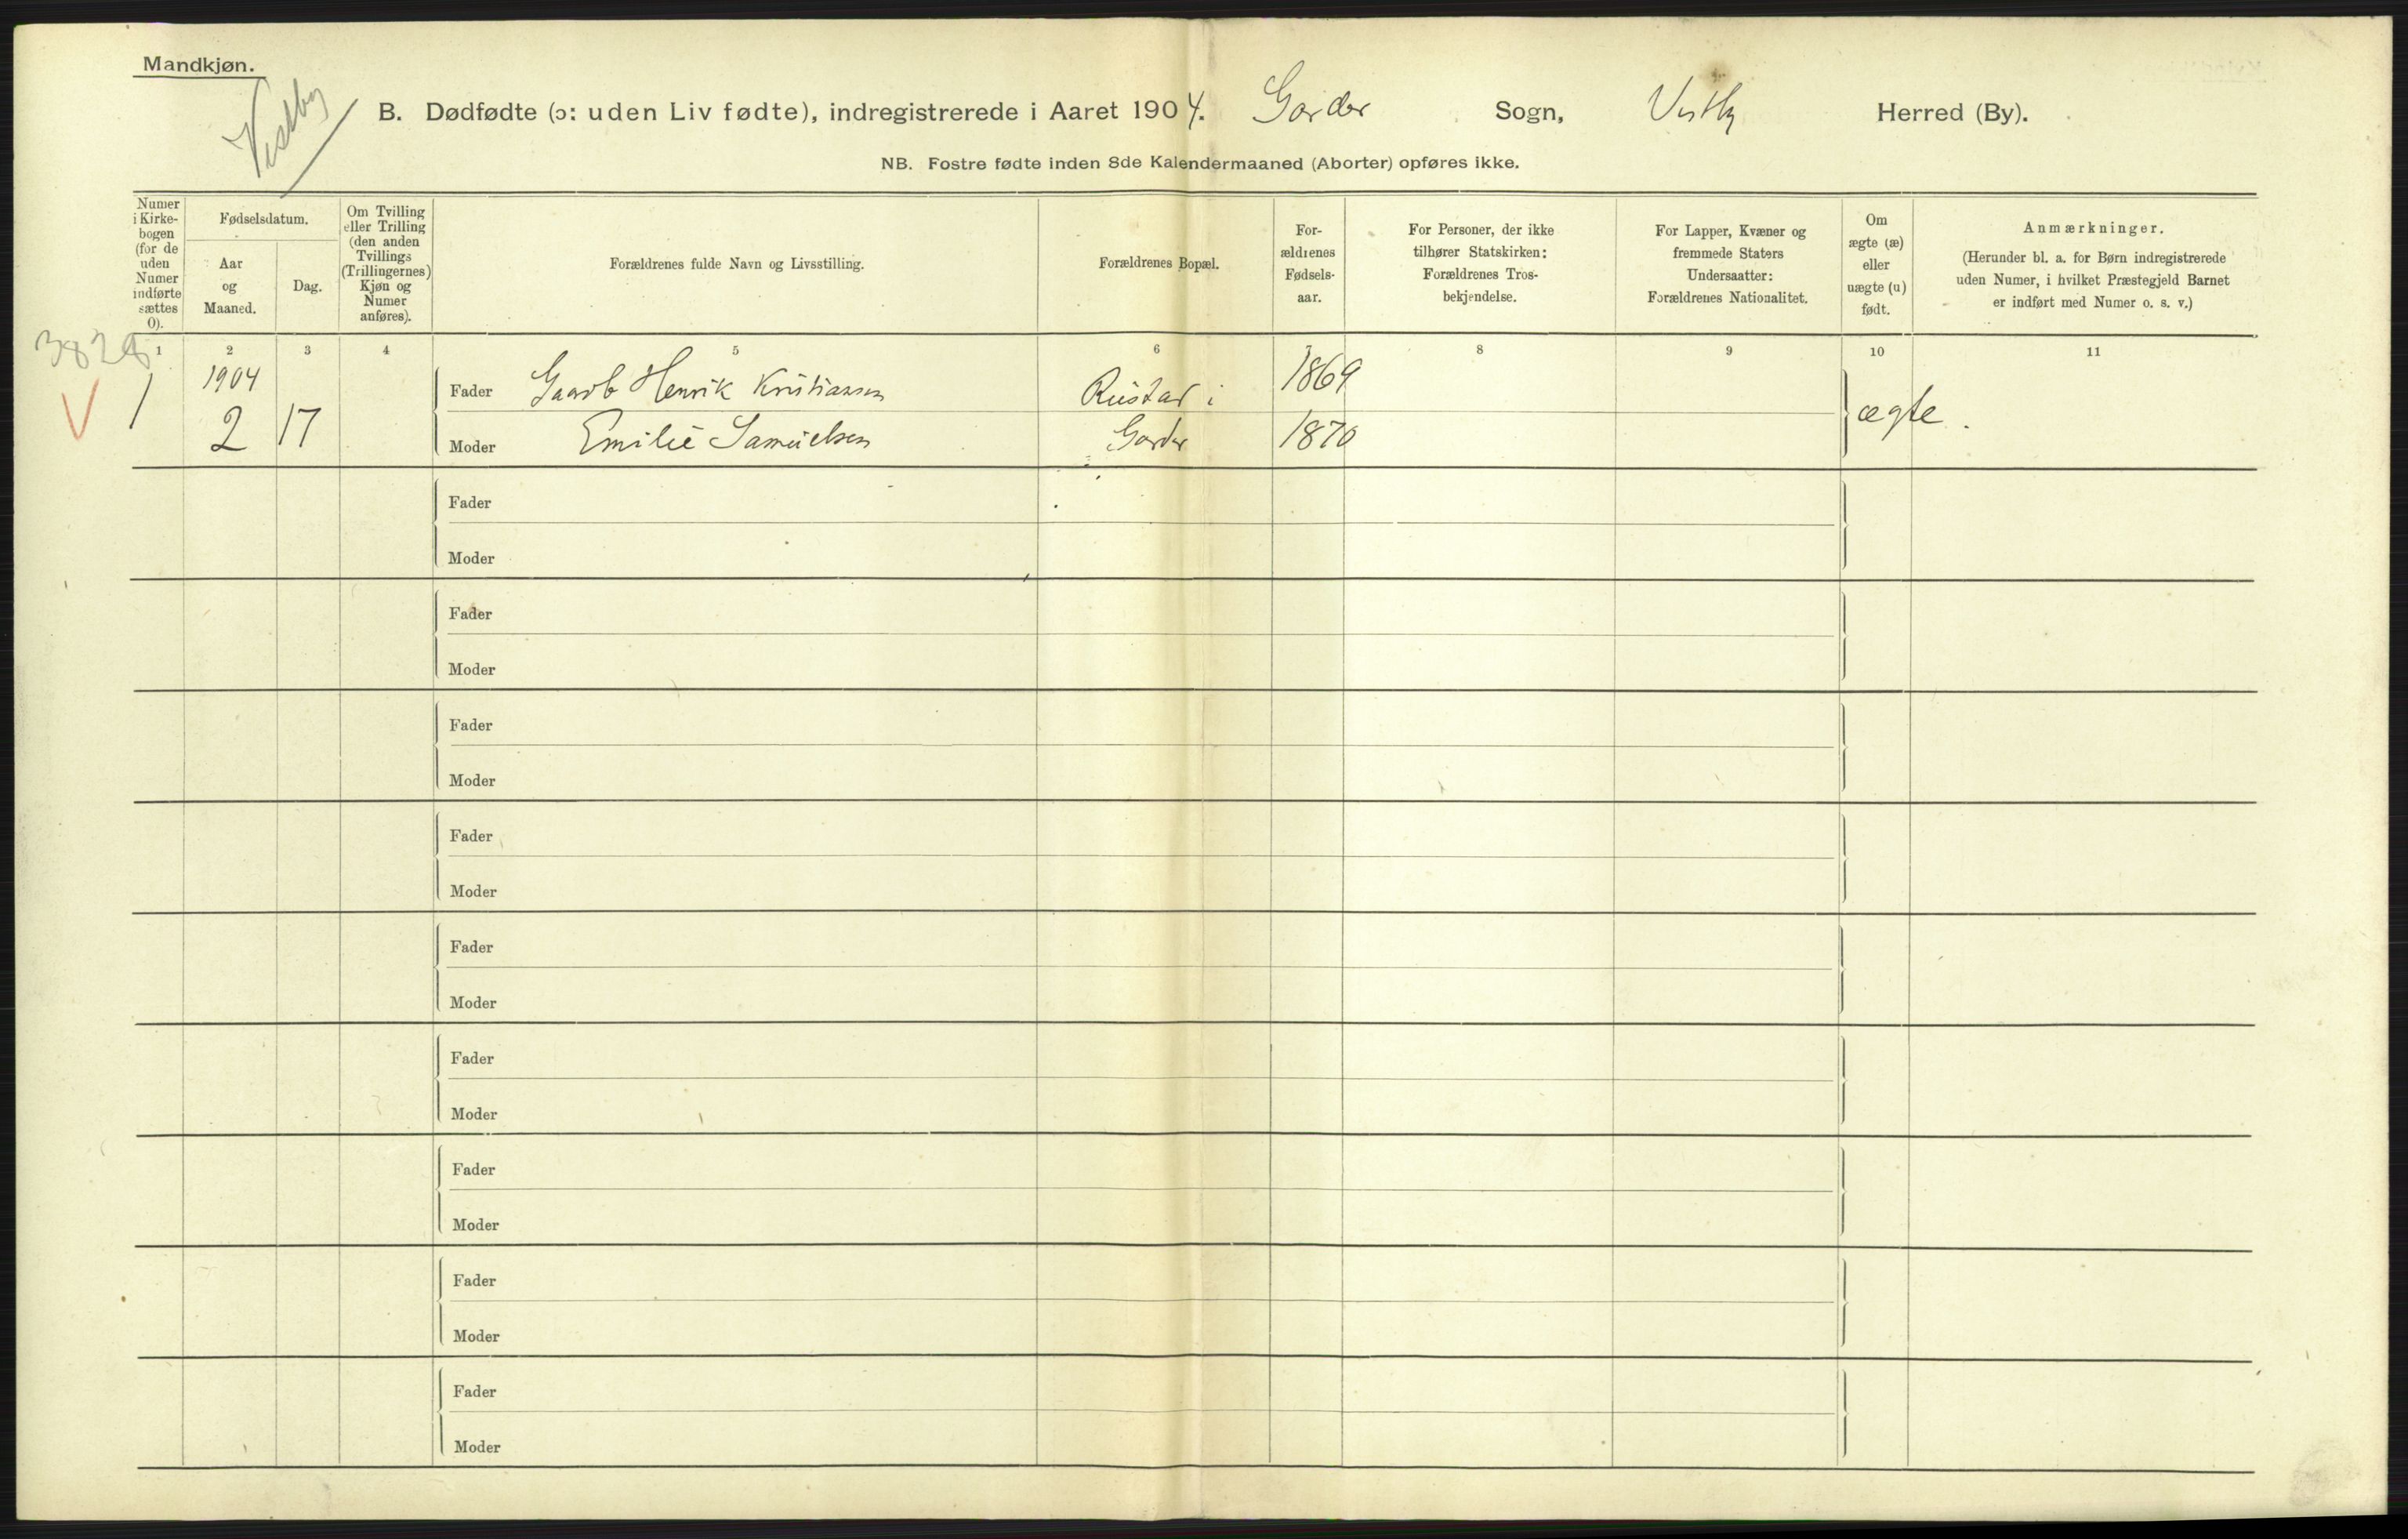 Mandkjøn.
Vestby
B. Dødfødte (ɔ: uden Liv fødte), indregistrerede i Aaret 1904. Garder Sogn, Vestby Herred (By).
NB. Fostre fødte inden 8de Kalendermaaned (Aborter) opføres ikke.
Numer
i Kirke-
bogen
(for de
uden
Numer
indførte
sættes
0).
Fødselsdatum.
Aar
og
Maaned.
Dag.
Om Tvilling
eller Trilling
(den anden
Tvillings
(Trillingernes)
Kjøn og
Numer
anføres).
Forældrenes fulde Navn og Livsstilling.
Forældrenes Bopæl.
For-
ældrenes
Fødsels-
aar.
For Personer, der ikke
tilhører Statskirken:
Forældrenes Tros-
bekjendelse.
For Lapper, Kvæner og
fremmede Staters
Undersaatter:
Forældrenes Nationalitet.
Om
ægte (æ)
eller
uægte (u)
født.
Anmærkninger.
(Herunder bl. a. for Børn indregistrerede
uden Numer, i hvilket Præstegjeld Barnet
er indført med Numer o. s. v.)
1 2 3 4 5 6 7 8 9 10 11
1904
1 Fader Henrik Kristiansen Rustad i 1869
ægte.
2 17 Moder Emilie Samuelsen Garder 1870
Fader
Moder
Fader
Moder
Fader
Moder
Fader
Moder
Fader
Moder
Fader
Moder
Fader
Moder
Fader
Moder
Fader
Moder